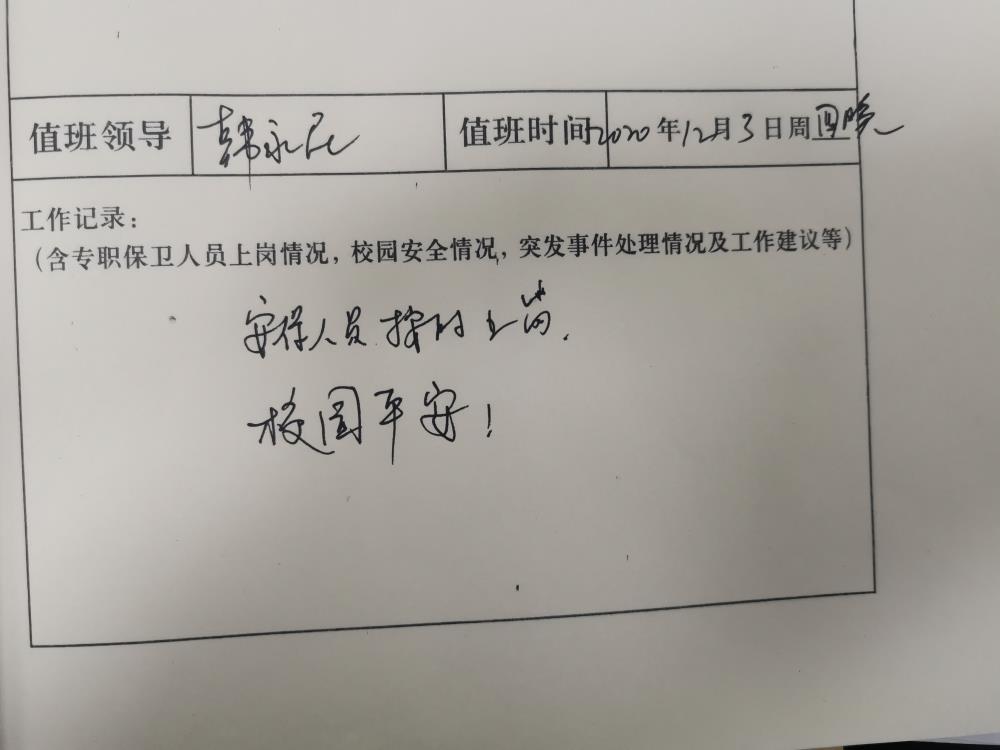 值班领导 韩永民 值班时间 2020年12月3日周四晚
工作记录：
（含专职保卫人员上岗情况，校园安全情况，突发事件处理情况及工作建议等）
安保人员按时上岗.
校园平安！